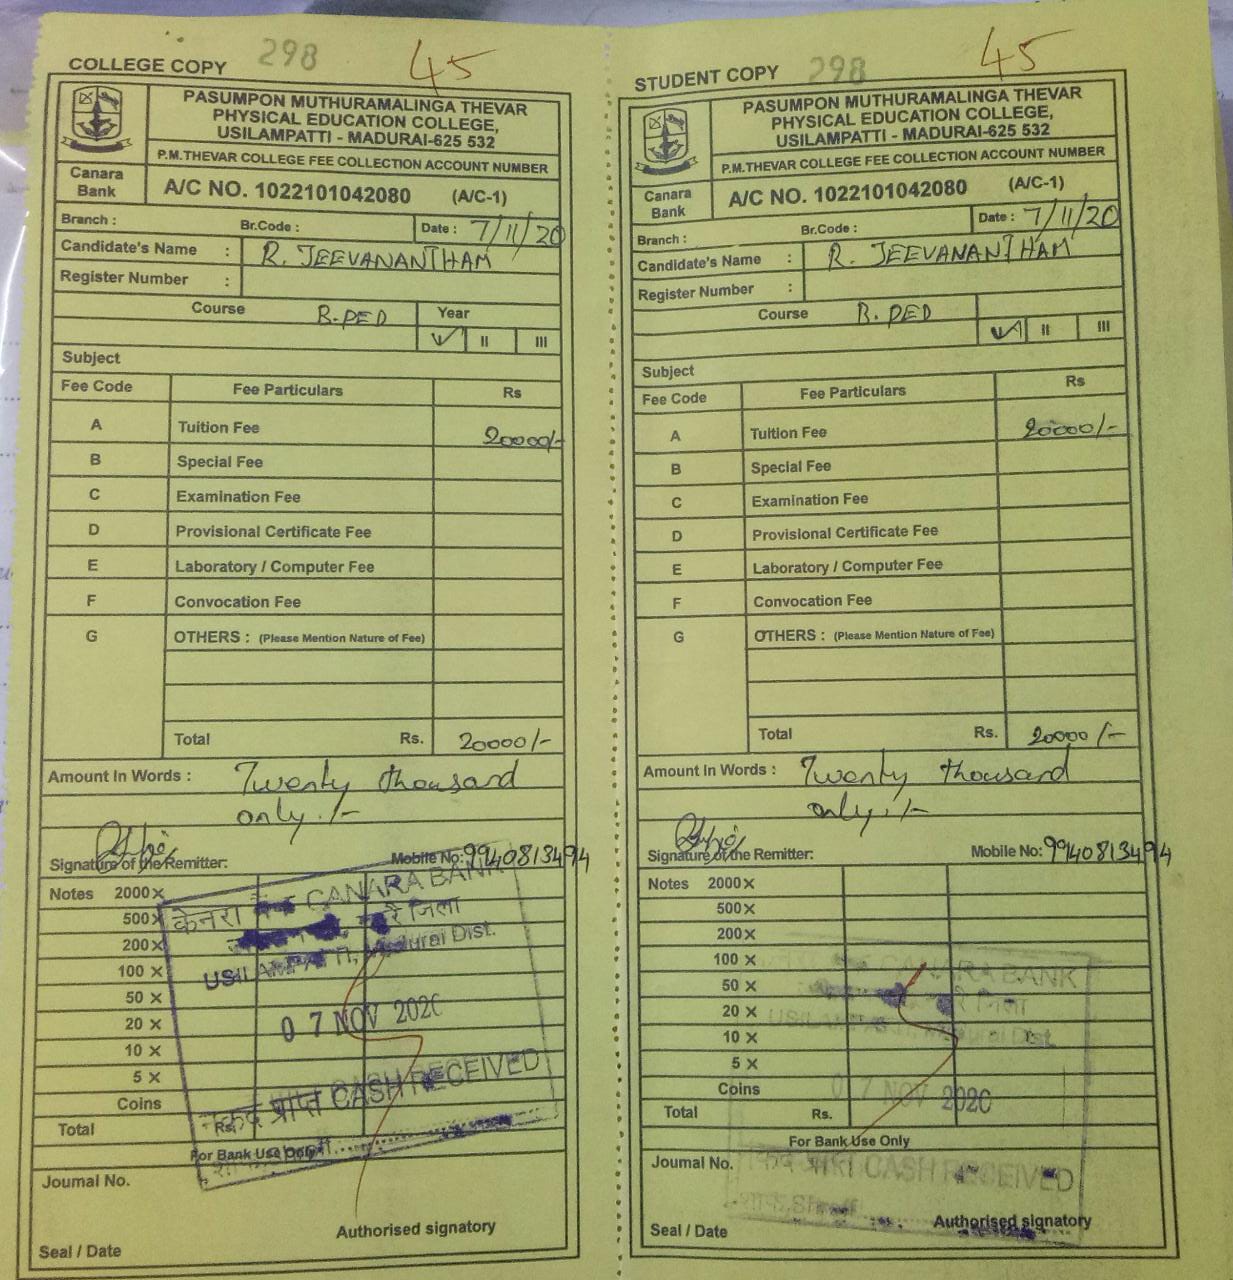 COLLEGE COPY 298 45
PASUMPON MUTHURAMALINGA THEVAR
PHYSICAL EDUCATION COLLEGE,
USILAMPATTI - MADURAI-625 532
P.M.THEVAR COLLEGE FEE COLLECTION ACCOUNT NUMBER
Canara Bank A/C NO. 1022101042080 (A/C-1)
Branch : Br.Code : Date : 7/11/20
Candidate's Name : R. JEEVANANTHAM
Register Number :
Course B.PED Year
II III
Subject
Fee Code Fee Particulars Rs
A Tuition Fee 20000/-
B Special Fee
C Examination Fee
D Provisional Certificate Fee
E Laboratory / Computer Fee
F Convocation Fee
G OTHERS : (Please Mention Nature of Fee)
Total Rs. 20000/-
Amount In Words : Twenty thousand
only./-
Signature of the Remitter: Mobile No: 9940813494
Notes 2000 X
500 X
200 X
100 X
50 X
20 X
10 X
5 X
Coins
Total Rs.
For Bank Use Only
Journal No.
Authorised signatory
Seal / Date
केनरा CANARA BANK
जिला
USILAMPATTI, Madurai Dist.
07 NOV 2020
नकद प्राप्त CASH RECEIVED
STUDENT COPY 298 45
PASUMPON MUTHURAMALINGA THEVAR
PHYSICAL EDUCATION COLLEGE,
USILAMPATTI - MADURAI-625 532
P.M.THEVAR COLLEGE FEE COLLECTION ACCOUNT NUMBER
Canara Bank A/C NO. 1022101042080 (A/C-1)
Branch : Br.Code : Date : 7/11/20
Candidate's Name : R. JEEVANANTHAM
Register Number :
Course B.PED
II III
Subject
Fee Code Fee Particulars Rs
A Tuition Fee 20000/-
B Special Fee
C Examination Fee
D Provisional Certificate Fee
E Laboratory / Computer Fee
F Convocation Fee
G OTHERS : (Please Mention Nature of Fee)
Total Rs. 20000/-
Amount In Words : Twenty thousand
only./-
Signature of the Remitter: Mobile No: 9940813494
Notes 2000 X
500 X
200 X
100 X
50 X
20 X
10 X
5 X
Coins
Total Rs.
For Bank Use Only
Journal No.
Authorised signatory
Seal / Date
CANARA BANK
USILAMPATTI, Madurai Dist.
07 NOV 2020
CASH RECEIVED
Shroff